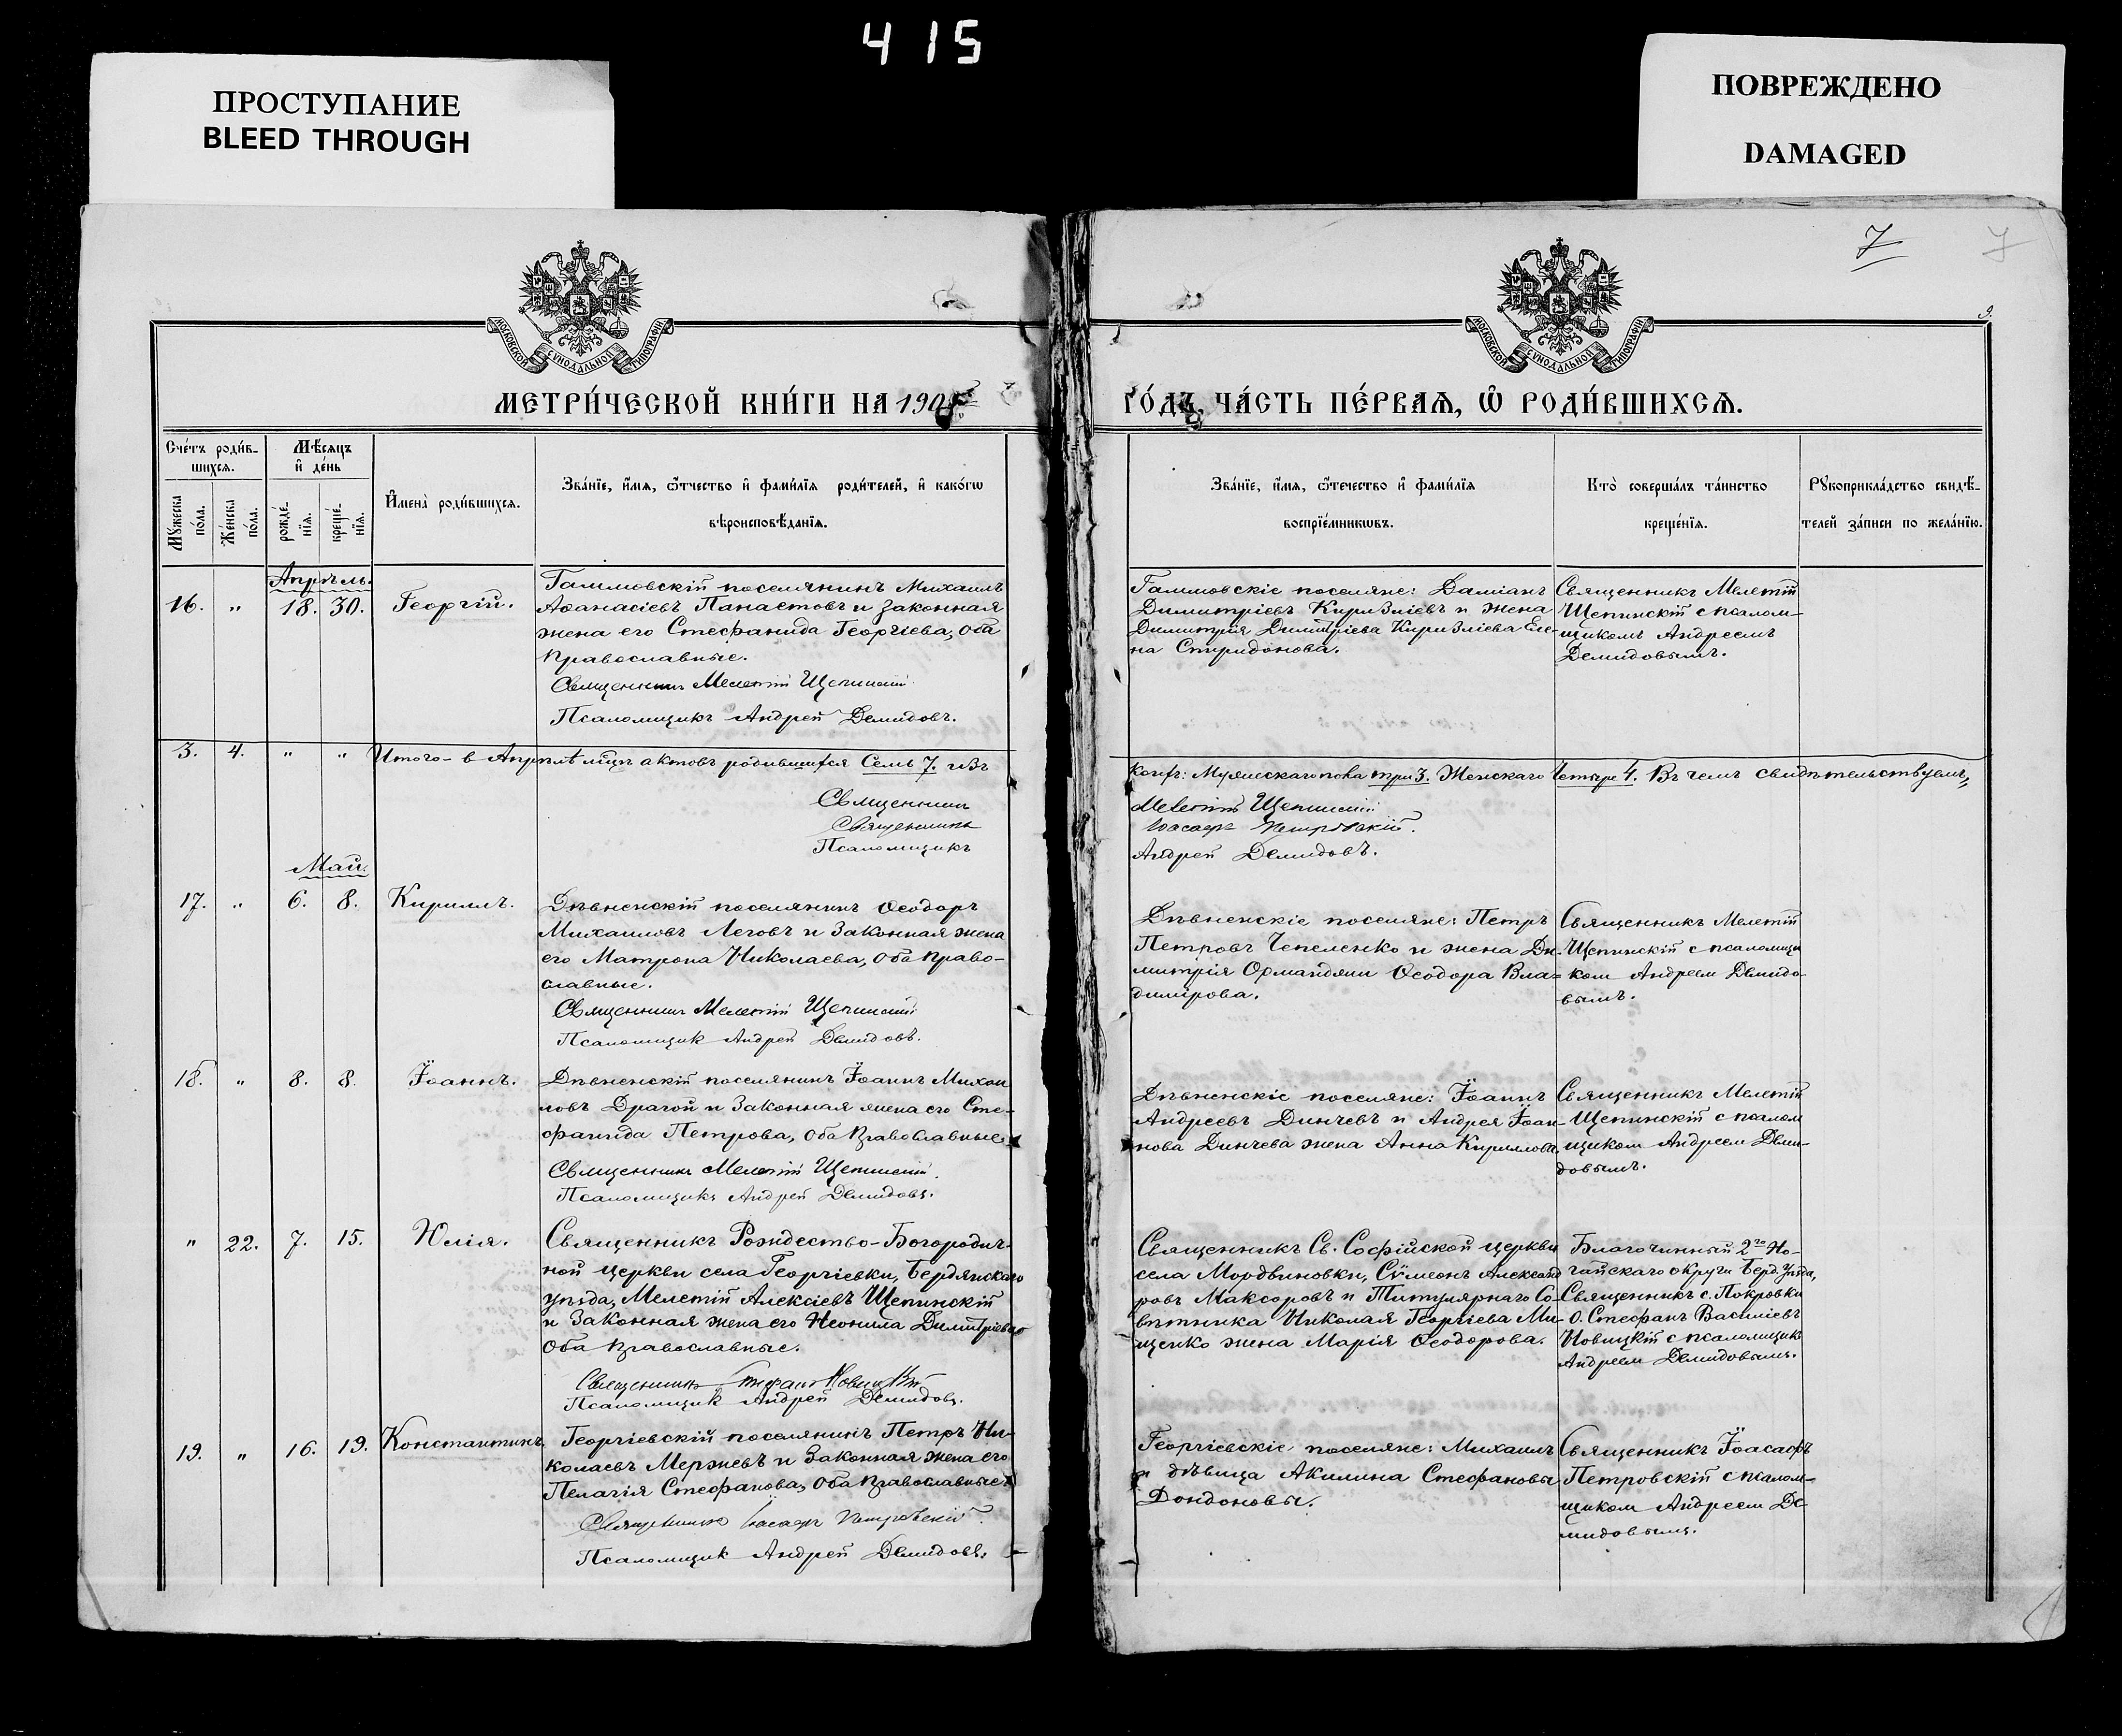 415
ПРОСТУПАНИЕ
BLEED THROUGH
ПОВРЕЖДЕНО
DAMAGED
7
7
9.
МОСКОВСКОЙ СѴНОДАЛЬНОЙ ТИПОГРАФІИ
МОСКОВСКОЙ СѴНОДАЛЬНОЙ ТИПОГРАФІИ
МЕТРИ́ЧЕСКОЙ КНИ́ГИ НА 190
ГО́ДЪ, ЧА́СТЬ ПЕ́РВАѦ, Ѡ РОДИ́ВШИХСѦ.
Счетъ роди́в-
шихсѧ.
Мѣ́сѧцъ
и҆ де́нь
Мꙋжеска по́ла.
Же́нска по́ла.
рожде́-
нїѧ.
креще́-
нїѧ.
И҆мена̀ роди́вшихсѧ.
Зва́нїе, и҆́мѧ, ѻ҆́тчество и҆ фами́лїѧ роди́телей, и҆ како́гѡ
вѣроисповѣ́данїѧ.
Зва́нїе, и҆́мѧ, ѻ҆́течество и҆ фами́лїѧ
воспрїе́мникѡвъ.
Кто̀ соверша́лъ та́инство
креще́нїѧ.
Рꙋкоприкла́дство свидѣ́-
телей за́писи по жела́нїю.
Апрѣль.
16. " 18. 30. Георгій.
Галимовскій поселянинъ Михаилъ
Аѳанасіевъ Панастовъ и законная
жена его Стефанида Георгіева, оба
православные.
Священникъ Мелетій Щепинскій
Псаломщикъ Андрей Демидовъ.
Галимовскіе поселяне: Даміанъ
Димитріевъ Киризліевъ и жена
Димитрія Димитріева Киризліева Еле-
на Спиридонова.
Священникъ Мелетій
Щепинскій с псалом-
щикомъ Андреемъ
Демидовымъ.
3. 4. " " Итого - в Апрѣлѣ мцѣ актовъ родившихся Семь 7. изъ
коихъ: Мужескаго пола три 3. Женскаго Четыре 4. Въ чемъ свидѣтельствуемъ,
Священникъ
Мелетій Щепинскій
Священникъ
Іоасафъ Петровскій.
Псаломщикъ
Андрей Демидовъ.
Май.
17. " 6. 8. Кириллъ.
Дѣвненскій поселянинъ Ѳеодоръ
Михаиловъ Леговъ и законная жена
его Матрона Николаева, оба право-
славные.
Священникъ Мелетій Щепинскій
Псаломщик Андрей Демидовъ.
Дѣвненскіе поселяне: Петръ
Петровъ Чепеленко и жена Ди-
митрія Орманджи Ѳеодора Вла-
димірова.
Священникъ Мелетій
Щепинскій с псаломщи
ком Андреем Демидо-
вымъ.
18. " 8. 8. Іоаннъ.
Дѣвненскій поселянинъ Іоаннъ Михаи
ловъ Драгой и законная жена его Сте-
фанида Петрова, оба православные.
Священникъ Мелетій Щепинскій.
Псаломщикъ Андрей Демидовъ.
Дѣвненскіе поселяне: Іоаннъ
Андреевъ Динчевъ и Андрея Іоан-
нова Динчева жена Анна Кириллова.
Священникъ Мелетій
Щепинскій с псалом
щиком Андреем Деми-
довымъ.
" 22. 7. 15. Юлія.
Священникъ Рождество-Богородич-
ной церкви села Георгіевки, Бердянскаго
уѣзда, Мелетій Алексіевъ Щепинскій
и законная жена его Неонила Димитріева
оба православные.
Священникъ Стефанъ Новицкій
Псаломщик Андрей Демидовъ.
Священникъ Св. Софійской церкви
села Мордвиновки, Сѵмеонъ Александ
ровъ Максоровъ и Титулярнаго Со-
вѣтника Николая Георгіева Ми-
щенко жена Марія Ѳеодорова.
Благочинный 2го Но-
гайскаго округа Берд. уѣзда,
Священникъ с. Покровки
О. Стефанъ Василіевъ
Новицкій с псаломщик
Андреем Демидовымъ.
19. " 16. 19. Константинъ.
Георгіевскій поселянинъ Петръ Ни-
колаевъ Мержевъ и законная жена его
Пелагія Стефанова, оба православные.
Священникъ Іоасафъ Петровскій.
Псаломщик Андрей Демидовъ.
Георгіевскіе поселяне: Михаилъ
и дѣвица Акилина Стефановы
Дондоновы.
Священникъ Іоасафъ
Петровскій с псалом-
щиком Андреем Де-
мидовымъ.